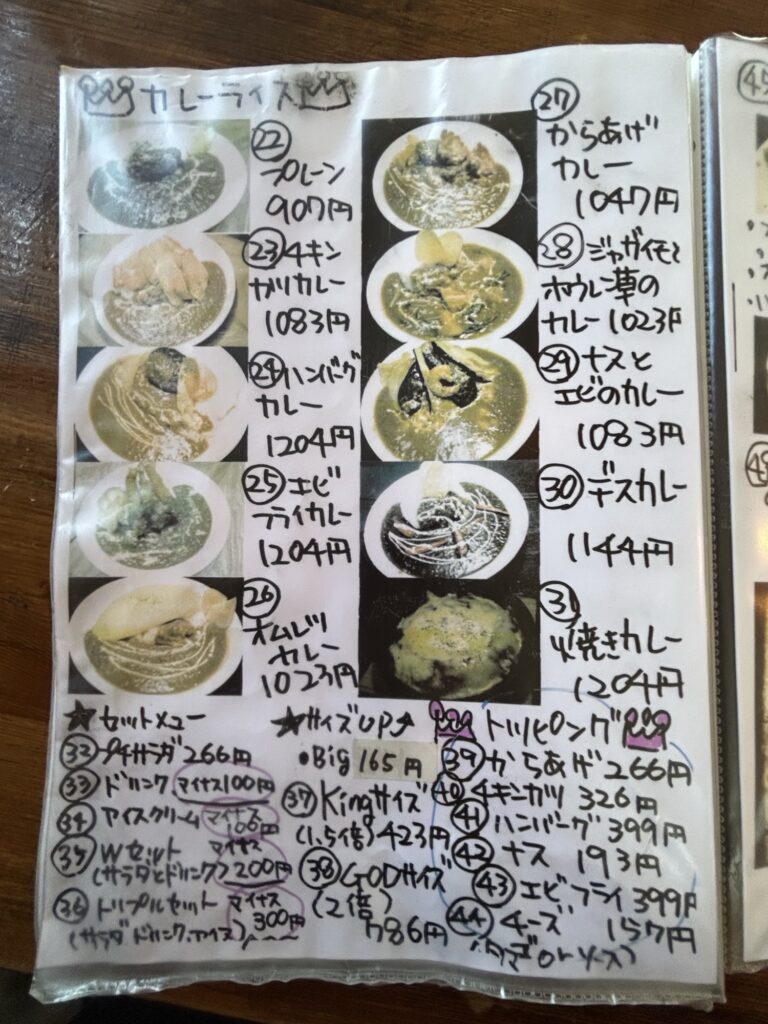 カレーライス
22
プレーン
907円
23 チキン
カツカレー
1083円
24 ハンバーグ
カレー
1204円
25 エビ
フライカレー
1204円
26
オムレツ
カレー
1023円
27
からあげ
カレー
1047円
28 ジャガイモと
ホウレン草の
カレー 1023円
29 ナスと
エビのカレー
1083円
30 デスカレー
1144円
31
焼きカレー
1204円
★セットメニュー
32 プチサラダ 266円
33 ドリンク マイナス100円
34 アイスクリーム マイナス
100円
35 Wセット マイナス
(サラダとドリンク) 200円
36 トリプルセット マイナス
300円
(サラダ ドリンク、アイス)
★サイズUP↗
•Big 165円
37 Kingサイズ
(1.5倍) 423円
38 GODサイズ
(2倍)
786円
トッピング
39 からあげ 266円
40 チキンカツ 326円
41 ハンバーグ 399円
42 ナス 193円
43 エビフライ 399円
44 チーズ 157円
(タマゴorソース)
45